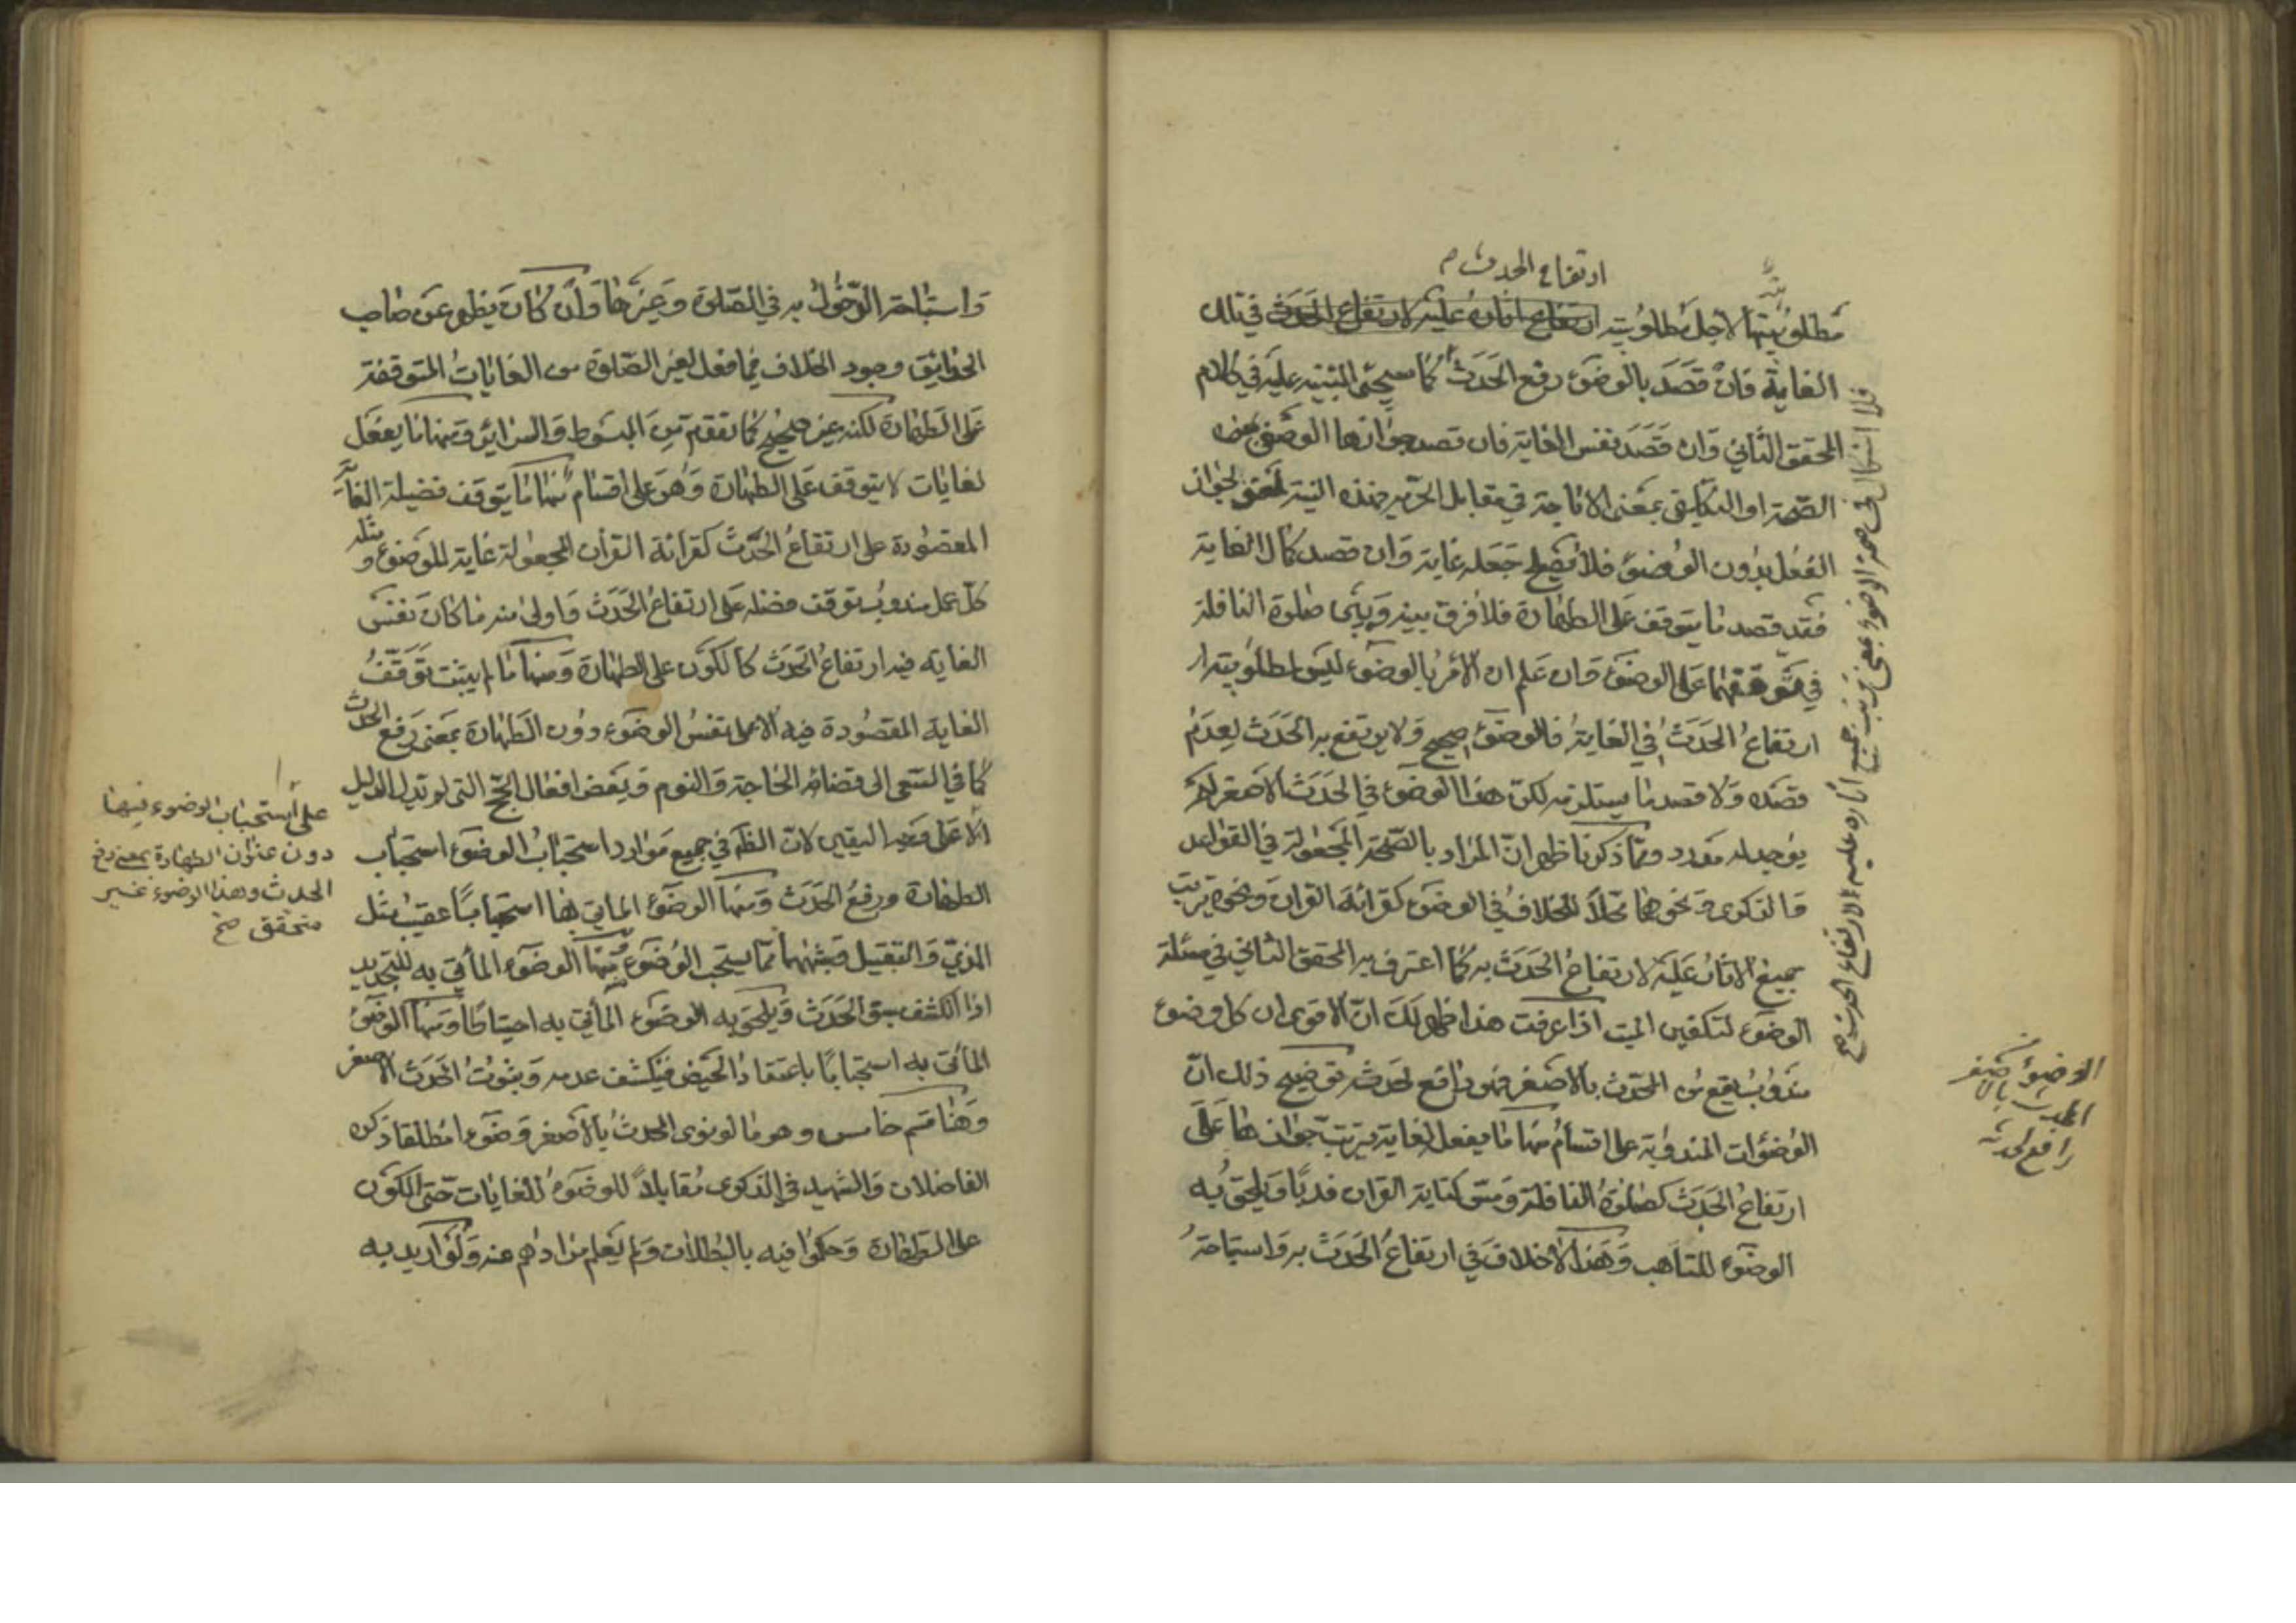 ارتفاع الحدث م
مطلوبيتها لاجل مطلوبيته ارتفاع اثاره عليه لارتفاع الحدث في تلك
الغاية فان قصد بالوضوء رفع الحدث كما سيجئ التنبيه عليه في كلام
المحقق الثاني وان قصد نفس الغاية فان قصد جوازها الوضعي بمعنى
الصحة او التكليفي بمعنى الاباحة في مقابل الحرمة هذه النية لجواز
الفعل بدون الوضوء فلا يصلح جعله غاية وان قصد كمال الغاية
فقد قصد ما يتوقف على الطهارة فلا فرق بينه وبين صلوة النافلة
في توقفهما على الوضوء وان علم ان الامر بالوضوء ليس لمطلوبية
ارتفاع الحدث في الغاية فالوضوء صحيح ولا يرتفع به الحدث لعدم
قصده ولا قصد ما يستلزمه لكن هذا الوضوء في الحدث الاصغر لم
يوجد له مورد ومما ذكرنا ظهر ان المراد بالصحة المجعولة في القواعد
والذكرى ونحوهما محلا للخلاف في الوضوء كقرائة القران ونحوه ترتب
جميع الاثار عليه لارتفاع الحدث به كما اعترف به المحقق الثاني في مسئلة
الوضوء لتكفين الميت اذا عرفت هذا ظهر لك ان الاقوى ان كل وضوء
مندوب يقع من المحدث بالاصغر فهو رافع لحدثه توضيح ذلك ان
الوضوءات المندوبة على اقسام منها ما يفعل لغاية يترتب جوازها على
ارتفاع الحدث كصلوة النافلة ومس كتابة القران ندبا ويلحق به
الوضوء للتاهب وهذا لاخلاف في ارتفاع الحدث به واستباحة
فلا اشكال في صحة الوضوء بمعنى ترتب جميع اثاره عليه لارتفاع الحدث صح
الوضوء من
المحدث بالاصغر
رافع لحدثه
واستباحة الدخول به في الصلوة وغيرها وان كان يظهر عن صاحب
الحدائق وجود الخلاف فيما فعل لغير الصلوة من الغايات المتوقفة
على الطهارة لكنه غير صحيح كما تقدم من المبسوط والسرائر ومنها ما يفعل
لغايات لا يتوقف على الطهارة وهو على اقسام منها ما يتوقف فضيلة الغاية
المقصودة على ارتفاع الحدث كقرائة القران المجعولة غاية للوضوء و مثله
كل عمل مندوب يتوقف فضله على ارتفاع الحدث واولى منه ما كان نفس
الغاية فيه ارتفاع الحدث كالكون على الطهارة ومنها ما لم يثبت توقف
الغاية المقصودة فيه الا على نفس الوضوء دون الطهارة بمعنى رفع الحدث
كما في السعى الى قضاء الحاجة والنوم وبعض افعال الحج التى لم يدل الدليل
على استحباب الوضوء فيها
دون عنوان الطهارة بمعنى رفع
الحدث وهذا الوضوء غير
متحقق صح
الا على وجه اليقين لان الظ في جميع موارد استحباب الوضوء استحباب
الطهارة ورفع الحدث ومنها الوضوء الماتي بها استحبابا عقيب مثل
المذي والتقبيل وشبههما مما يستحب الوضوء منها الوضوء المأتي به للتجديد
اذا انكشف سبق الحدث ويلحق به الوضوء المأتي به احتياطا ومنها الوضوء
المأتى به استحبابا باعتقاد الحيض فينكشف عدمه وبثبوت الحدث الاصغر
وهنا قسم خامس وهو ما لو نوى المحدث بالاصغر وضوءا مطلقا ذكره
الفاضلان والشهيد في الذكرى مقابلا للوضوء للغايات حتى الكون
على الطهارة وحكموا فيه بالبطلان ولم يعلم مرادهم عنه ولو اريد به